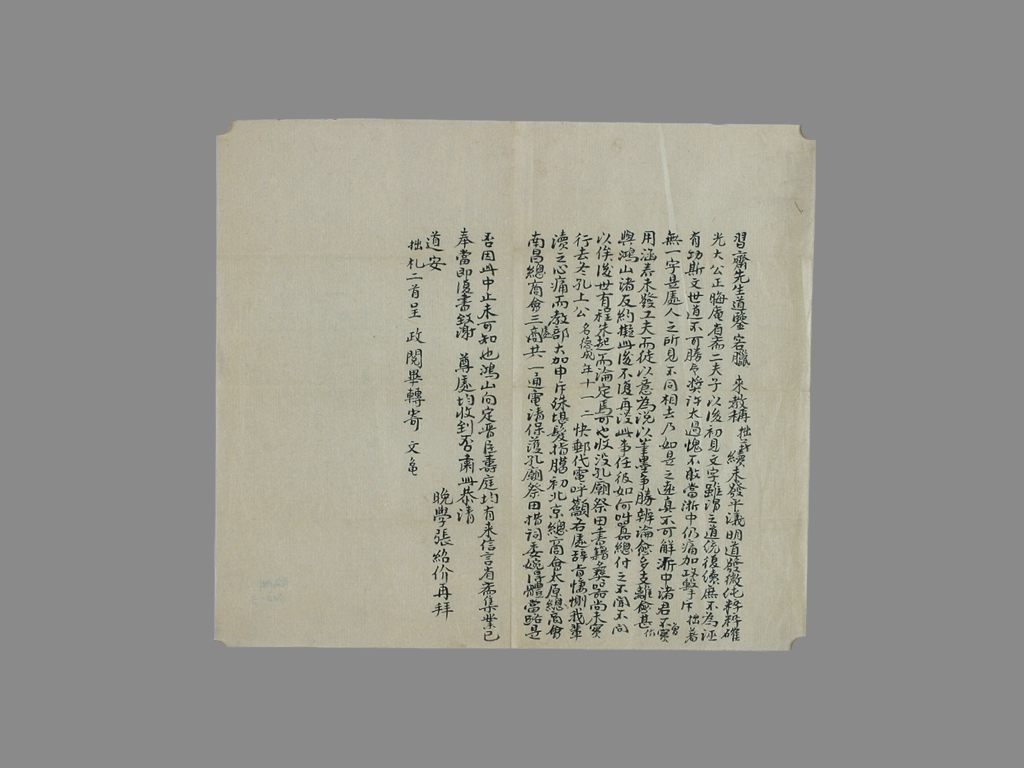 習齋先生道鑒客臘 來教稱 拙著續未發平議明道發微純粹精確
光大公正晦庵省齋二夫子以後初見文字雖謂之道統復續庶不為誣
有功斯文世道不可勝言獎許太過愧不敢當浙中仍痛加攻擊斥 拙著
無一字是處人之所見不同相去乃如是之遠真不可解浙中諸君不實
用涵養未發工夫而徒以意為說以筆墨爭勝辨論愈多支離愈甚
與鴻山諸友約擬此後不復再談此事任彼如何吽囂總付之不聞不問
以俟後世有程朱起而論定焉可也收沒孔廟祭田書籍彝器尚未實
行去冬孔上公 名德成 年十一二 快郵代電呼籲各處辭旨悽惻我輩
讀之心痛而教部大加申斥殊堪髮指臘初北京總商會太原總商會
南昌總商會三處共一通電請保護孔廟祭田措詞委婉得體當路是
否因此中止未可知也鴻山向定晉臣壽庭均有來信言省齋集業已
奉當即復書致謝 尊處均收到否肅此恭請
道安
晚學張紹价再拜
拙札二首呈 政閱畢轉寄 文龜